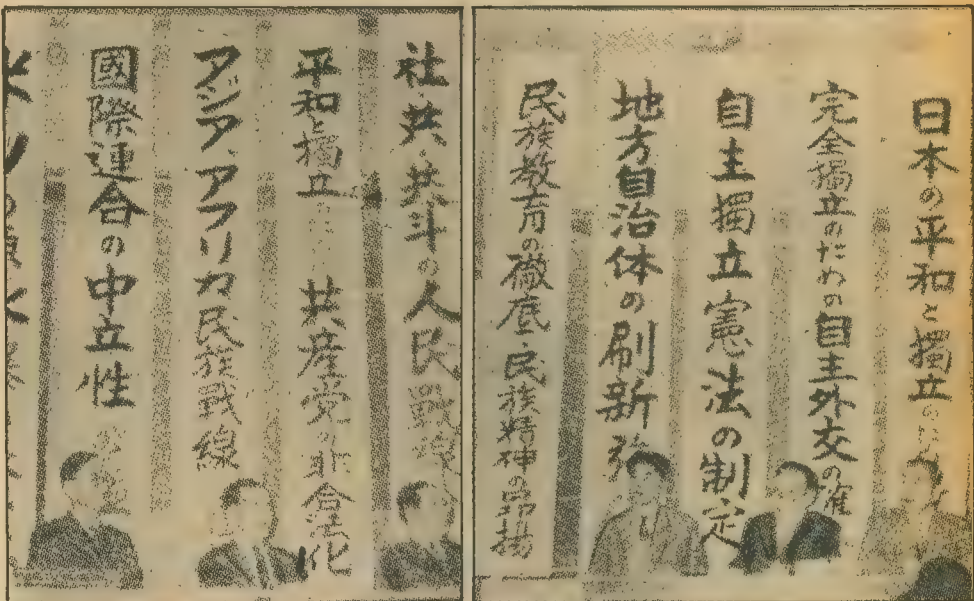 日本の平和と獨立の
完全獨立のための自主外交の推
自主獨立憲法の制定
地方自治体の刷新強
民族教育の徹底・民族精神の昂揚
社共・共斗の人民戰線
平和と獨立 共産党の非合法化
アジア・アフリカ民族戰線
國際連合の中立性